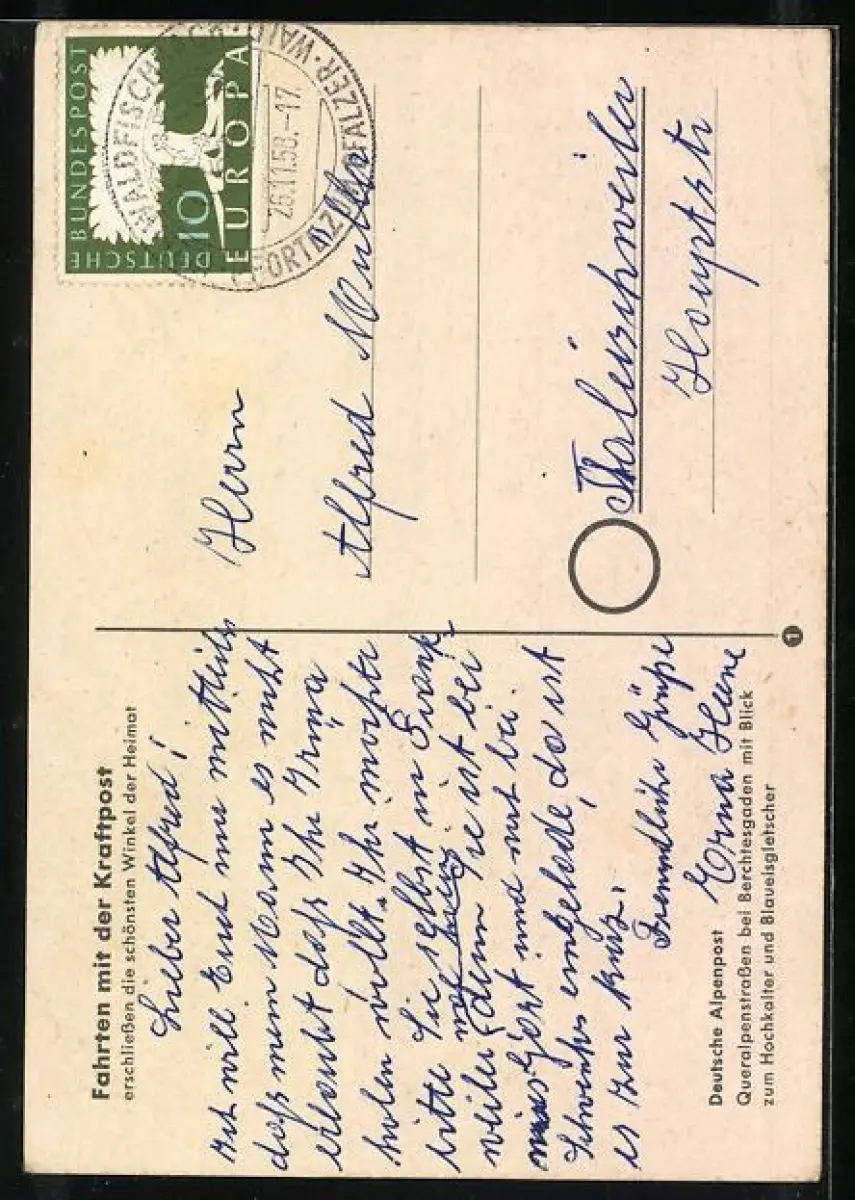 Fahrten mit der Kraftpost
erschließen die schönsten Winkel der Heimat
Lieber Alfred!
Ich will Euch nur mitteilen
daß mein Mann es nicht
erlaubt daß Ihr Irma
holen wollt. Ihr möchte
bitte Sie selbst in
weiler denn Sie ist bei
Gört und nicht bei
Schwenks eingelade, da ist
es zur kurz.
Freundliche Grüße
Erna
Deutsche Alpenpost
Queralpenstraßen bei Berchtesgaden mit Blick
zum Hochkalter und Blaueisgletscher
1
DEUTSCHE BUNDESPOST
10
EUROPA
WALDFISCHBACH
26.11.58.-17
PFORTE ZUM PFÄLZER-WALD
Herrn
Alfred Müller
Thaleischweiler
Hauptstr